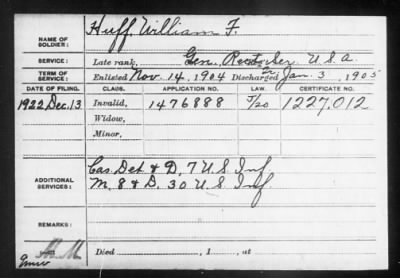 NAME OF SOLDIER: Huff, William F.
SERVICE: Late rank, Gen. U.S.A.
TERM OF SERVICE: Enlisted Nov. 14, 1904 Discharged Jan. 3, 1905
DATE OF FILING. CLASS. APPLICATION NO. LAW. CERTIFICATE NO.
1922 Dec. 13 Invalid, 1476888 1227,012
Widow,
Minor,
ADDITIONAL SERVICES: Cas. Det. & D, 7 U.S. Inf
M. 8 & D. 30 U.S. Inf.
REMARKS:
Died , 1 , at